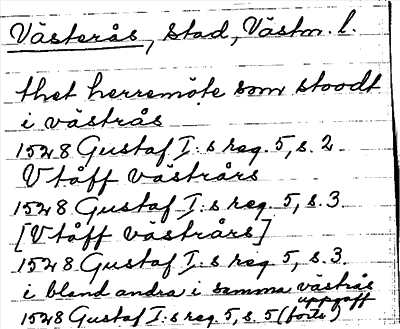 Västerås, stad, Västm. l.
thet herremöte som stoodt
i västrås
1528 Gustaf I:s reg. 5, s. 2
Vtåff västrårs
1528 Gustaf I:s reg. 5, s. 3
[Vtåff västrårs]
1528 Gustaf I:s reg 5, s. 3.
i bland andra i samma västrås
uppgäff
1528 Gustaf I:s reg 5, s. 5 (forts)